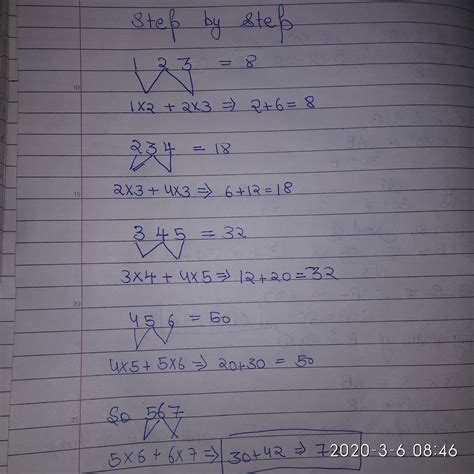 Step by Step
1 2 3 = 8
10
1×2 + 2×3 ⇒ 2+6 = 8
2 3 4 = 18
15
2×3 + 4×3 ⇒ 6+12 = 18
3 4 5 = 32
3×4 + 4×5 ⇒ 12+20 = 32
20
4 5 6 = 50
4×5 + 5×6 ⇒ 20+30 = 50
So 567
25
5×6 + 6×7 ⇒ 30+42 ⇒ 7
2020-3-6 08:46